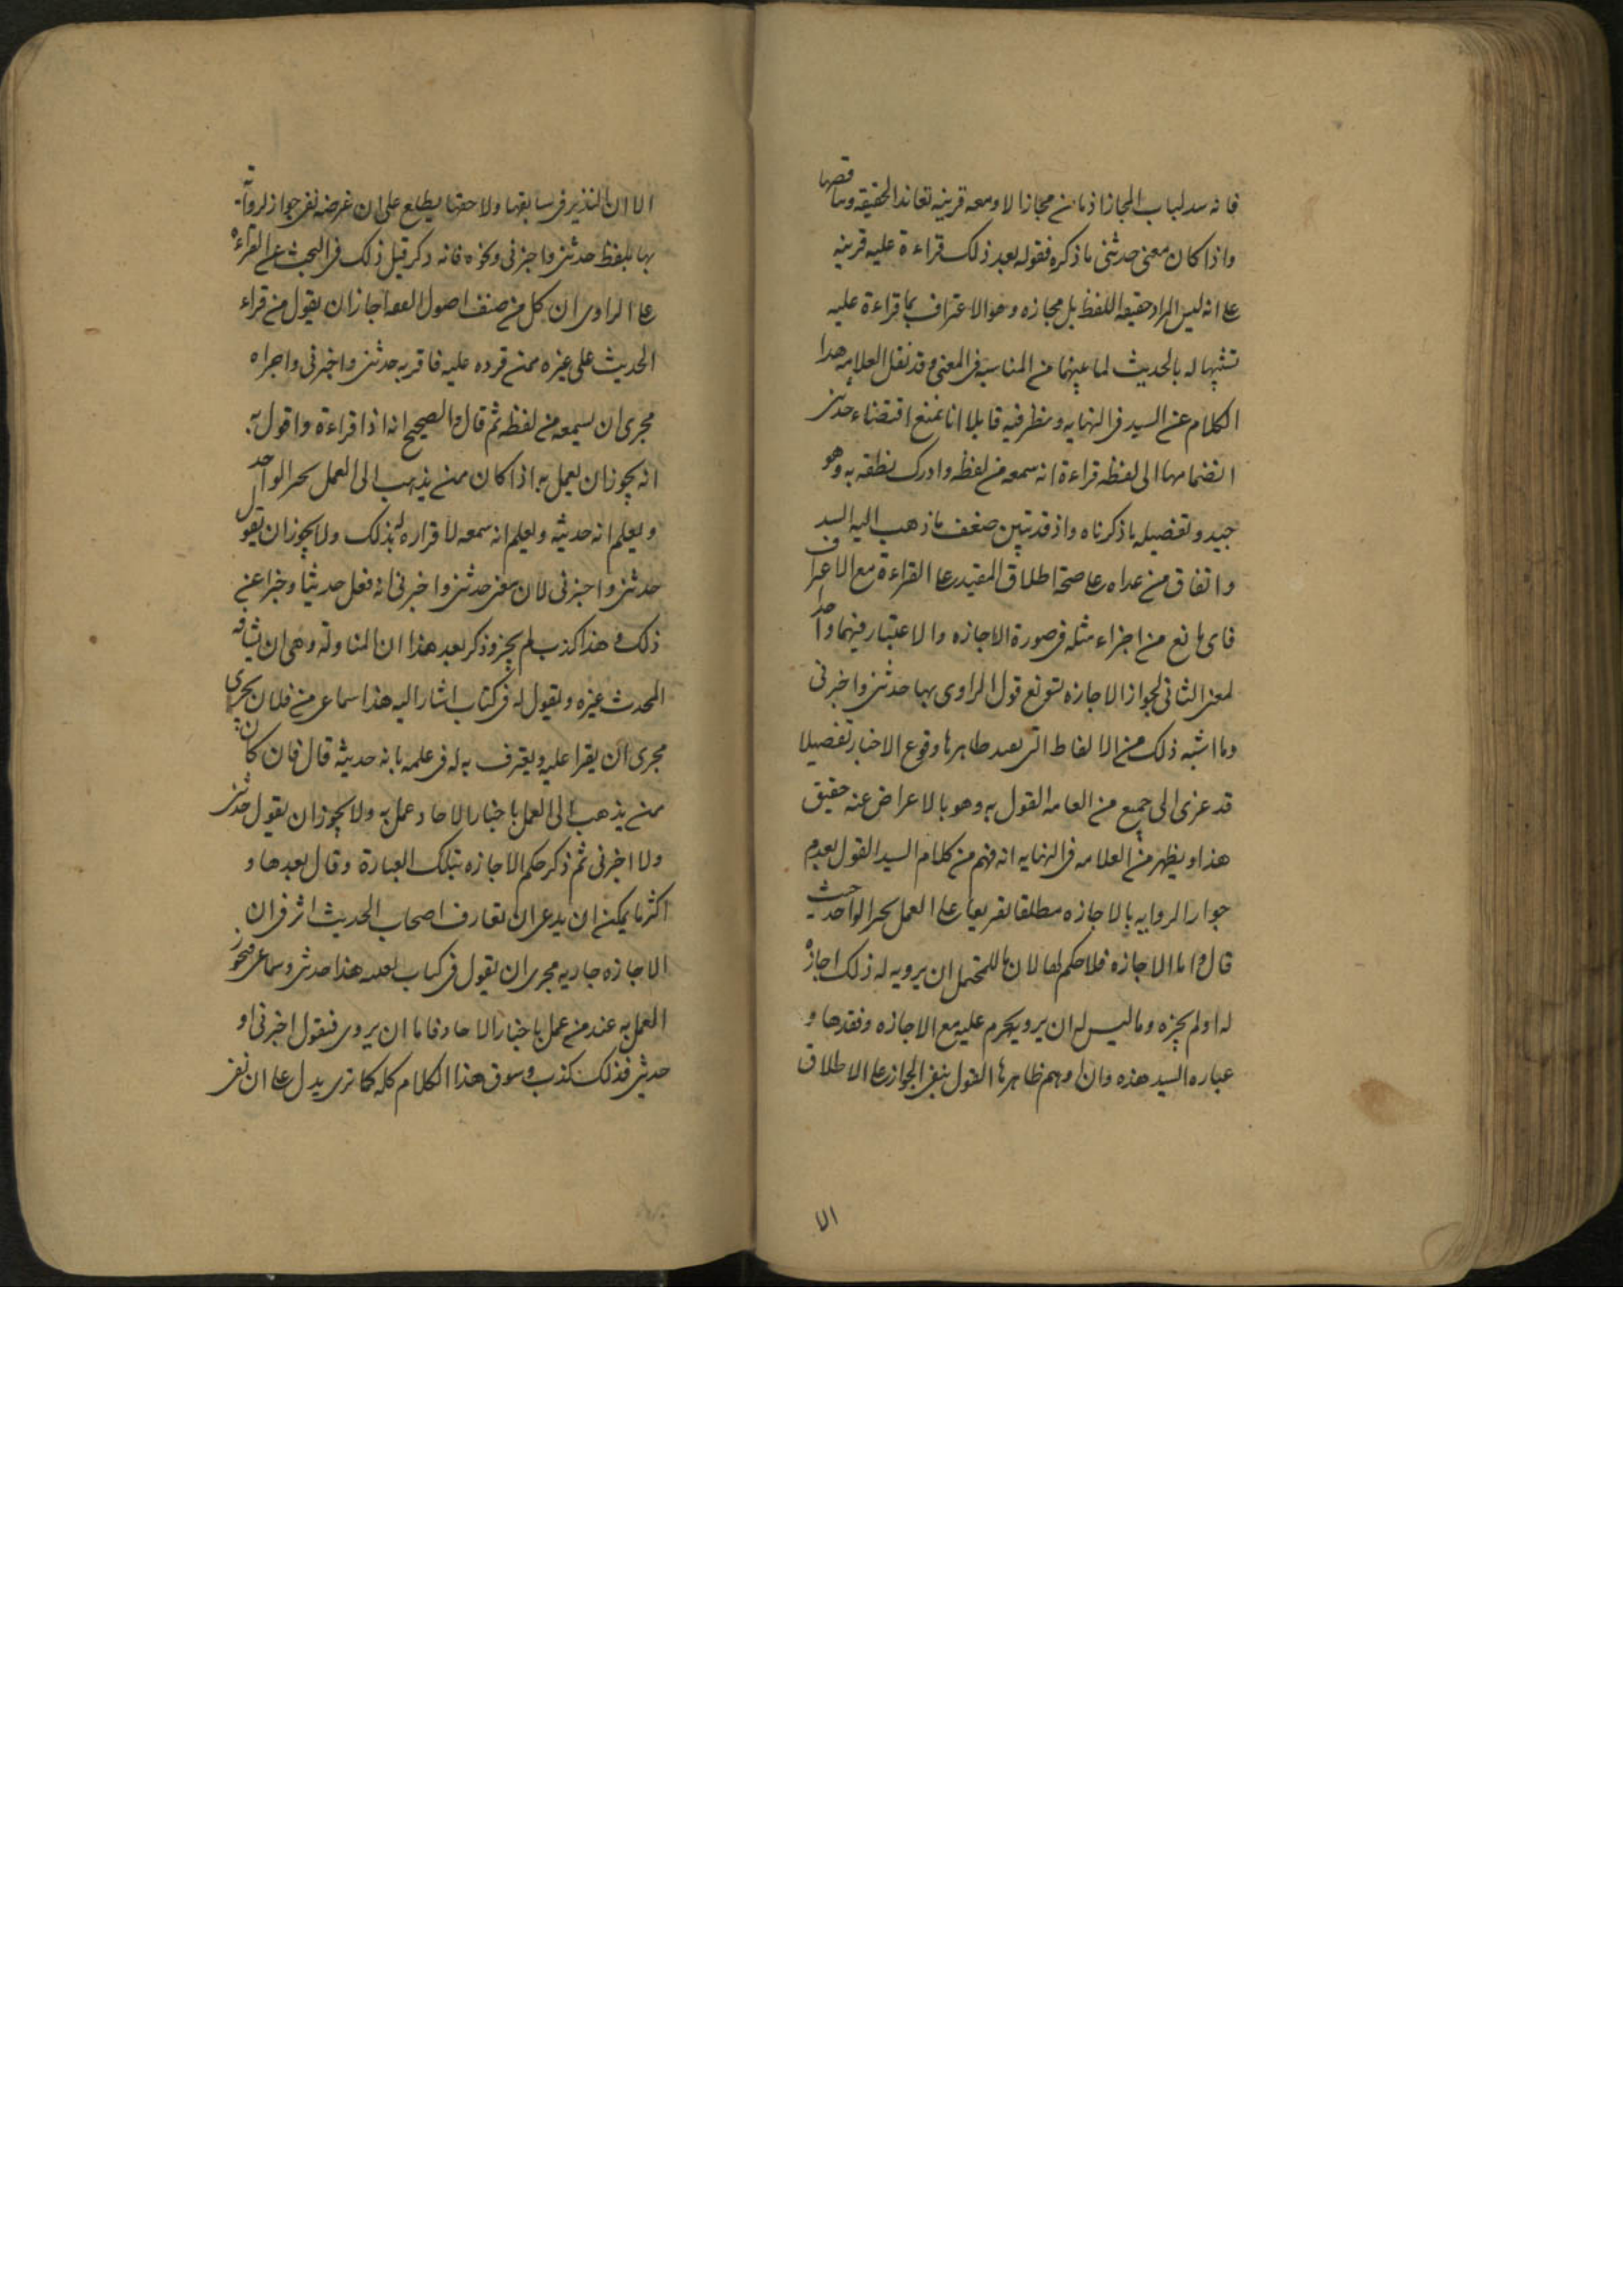 فانه سد لباب المجاز اذ ما من مجاز الا ومعه قرينه تعاند الحقيقه وتناقضها
واذا كان معنى حدثنى ما ذكره فقوله بعد ذلك قراءة عليه قرينه
على انه ليس المراد حقيقه اللفظ بل مجازه وهو الاعتراف بما قراءة عليه
تشبيها له بالحديث لما بينهما من المناسبة فى المعنى وقد نقل العلامه هدا
الكلام عن السيد فى النهايه ونظر فيه قايلا انا نمنع اقتضاء حدثنى
انضمامها الى لفظه قراءة انه سمعه من لفظه وادرك نطقه به وهو
جيد وتفضيله ما ذكرناه واذ قد تبين ضعف ما ذهب اليه السيد
واتفاق من عداه على صحة اطلاق المقيد على القراءة مع الاعتراف
فاى مانع من اجزاء مثله فى صورة الاجازه والاعتبار فيهما واحد
لمعنى الثانى لجواز الاجازه تسويغ قول الراوى بها حدثنى واخبرنى
وما اشبه ذلك من الالفاظ التى يفيد ظاهرها وقوع الاخبار تفصيلا
قد عزى الى جمع من العامه القول به وهو بالاعراض عنه حقيق
هذا ويظهر من العلامه فى النهايه انه فهم من كلام السيد القول بعدم
جواز الروايه بالاجازه مطلقا تفريعا على العمل بخبر الواحد حيث
قال واما الاجازه فلا حكم لها لان ما للمتحمل ان يرويه له ذلك اجازه
له او لم يجزه وما ليس له ان يرويه يحرم عليه مع الاجازه وفقدها و
عباره السيد هذه وان اوهم ظاهرها القول بنفى الجواز على الاطلاق
الا
الا ان النذير فى سابقها ولاحقها يطلع على ان غرضه نفى جواز لروايه
بها بلفظ حدثنى واخبرنى ونحوه فانه ذكر قبل ذلك فى البحث عن القراءه
على الراوى ان كل من صنف اصول الفقه اجاز ان يقول من قراء
الحديث على غيره ممن قرده عليه فاقر به حدثنى واخبرنى واجراه
مجرى ان يسمعه من لفظه ثم قال والصحيح انه اذا قراءة واقول به
انه يجوز ان يعمل به اذا كان ممن يذهب الى العمل بخبر الواحد
ويعلم انه حديثه ويعلم انه سمعه لا قراره له بذلك ولا يجوز ان يقول
حدثنى واخبرنى لان معنى حدثنى واخبرنى انه فعل حديثا وخبرا عن
ذلك وهذا كذب لم يجز وذكر بعد هذا ان المناولة وهى ان يشافه
المحدث غيره ويقول له فى كتاب اشار اليه هذا سماعى من فلان يجرى
مجرى ان يقرا عليه ويعترف به له فى علمه بانه حديثه قال فان كان
ممن يذهب الى العمل باخبار الاحاد عمل به ولا يجوز ان يقول حدثنى
ولا اخبرنى ثم ذكر حكم الاجازه بتلك العبارة وقال بعدها و
اكثر ما يمكن ان يدعى ان تعارف اصحاب الحديث اثر فى ان
الاجازه جاريه مجرى ان يقول فى كتاب بعينه هذا حديثى وسماعى فيجوز
العمل به عند من عمل باخبار الاحاد فاما ان يروى فيقول اخبرنى او
حدثنى فذلك كذب وسوق هذا الكلام كله كما ترى يدل على ان نفى